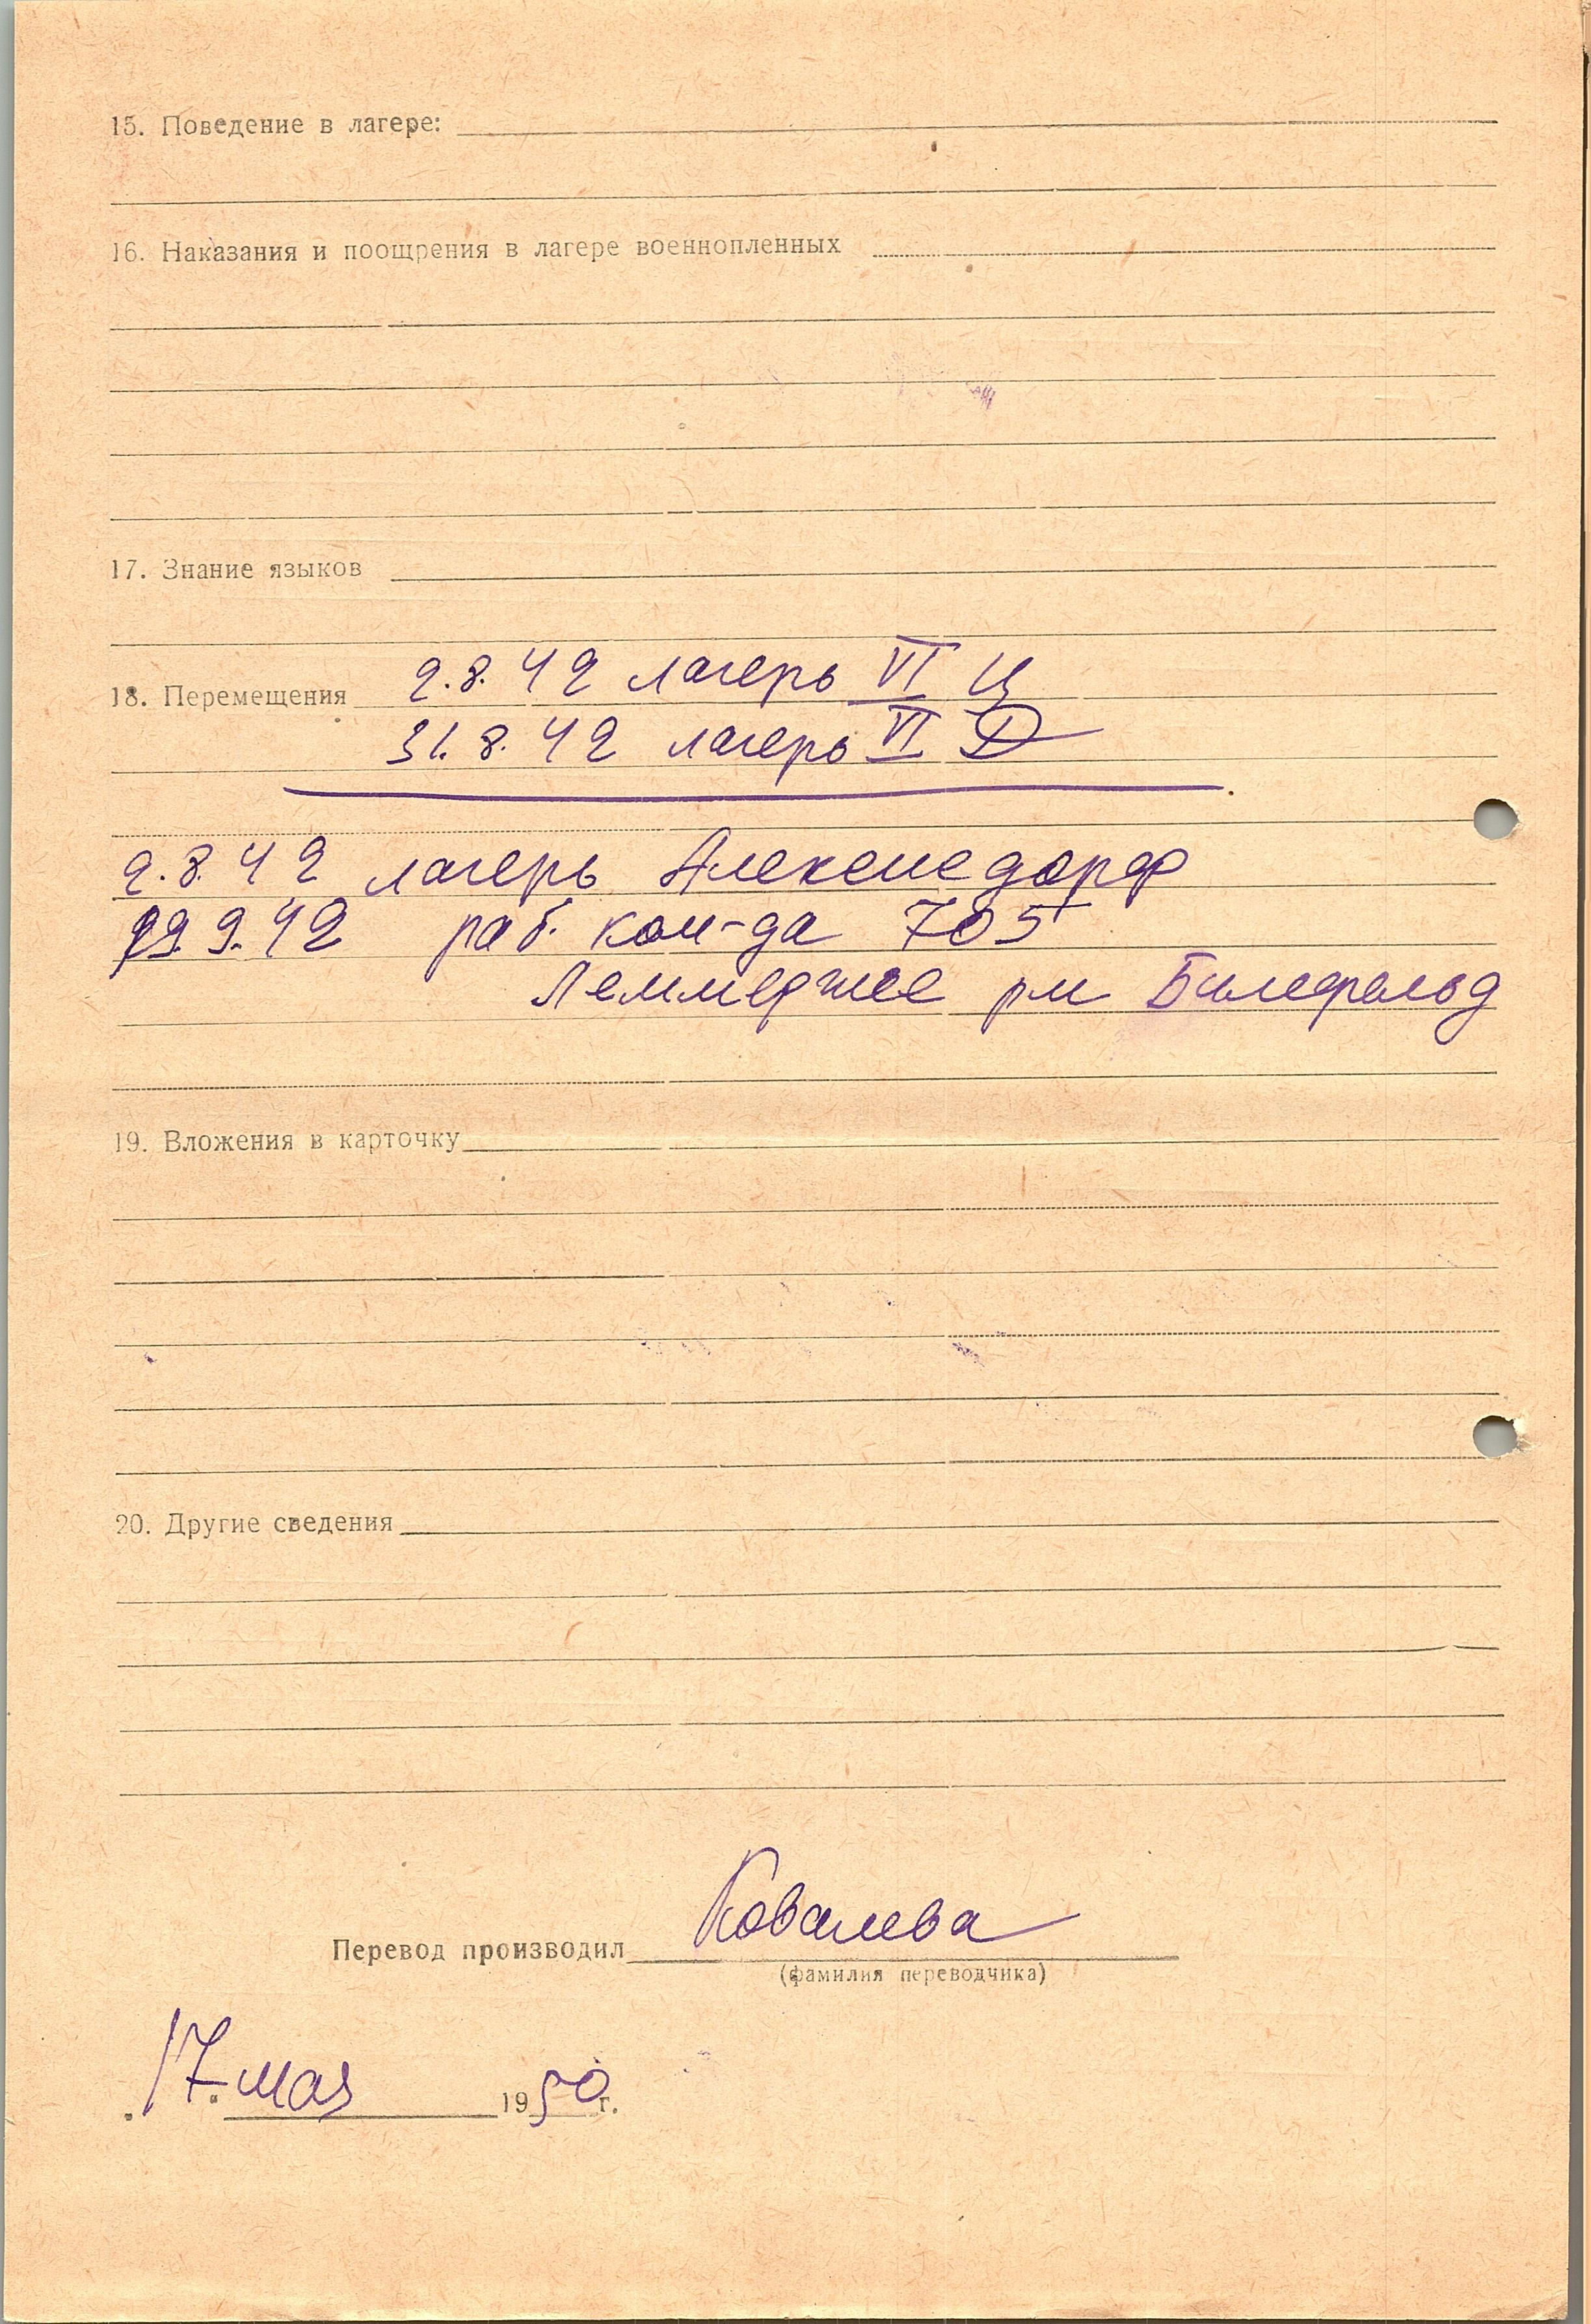 15. Поведение в лагере:
16. Наказания и поощрения в лагере военнопленных
17. Знание языков
18. Перемещения 2.8.42 лагерь VI Ц
31.8.42 лагерь VI D
2.8.42 лагерь Алексисдорф
9.42 раб. ком-да 705
рм Билефельд
19. Вложения в карточку
20. Другие сведения
Перевод производил Ковалева
(фамилия переводчика)
17 мая 1950 г.